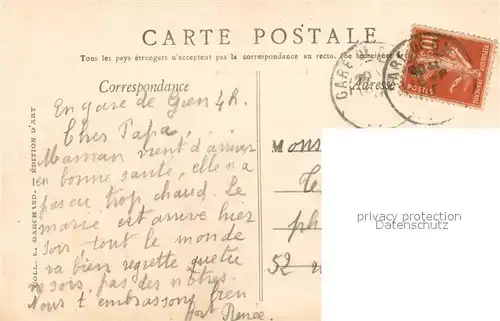 CARTE POSTALE
Tous les pays étrangers n'acceptent pas la correspondance au recto. (Se renseigner
Correspondance
Adresse
GARE DE
GARE
10
POSTES
COLL. L. MARCHAND. — ÉDITION D'ART
En gare de Gien 4h.
Cher Papa,
Maman vient d'arriver
en bonne santé, elle n'a
pas eu trop chaud. Le
marié est arrivé hier
soir tout le monde
va bien regrette que tu
ne sois pas des nôtres.
Nous t embrassons bien
fort Renée
Mons
ph
52
privacy protection
watermark